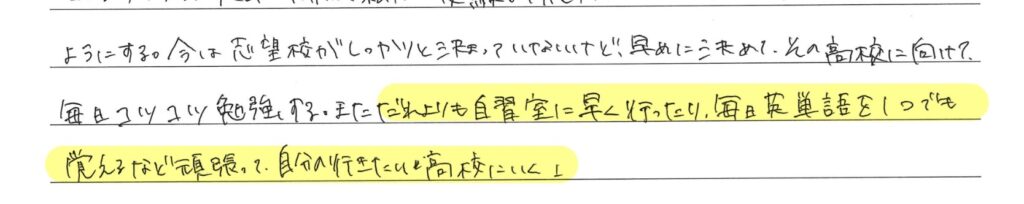 ようにする。今は志望校がしっかりと決まっていないけど、早めに決めて、その高校に向けて、
毎日コツコツ勉強する。まただれよりも自習室に早く行ったり、毎日英単語を1つでも
覚えるなど頑張って、自分の行きたい高校にいく!